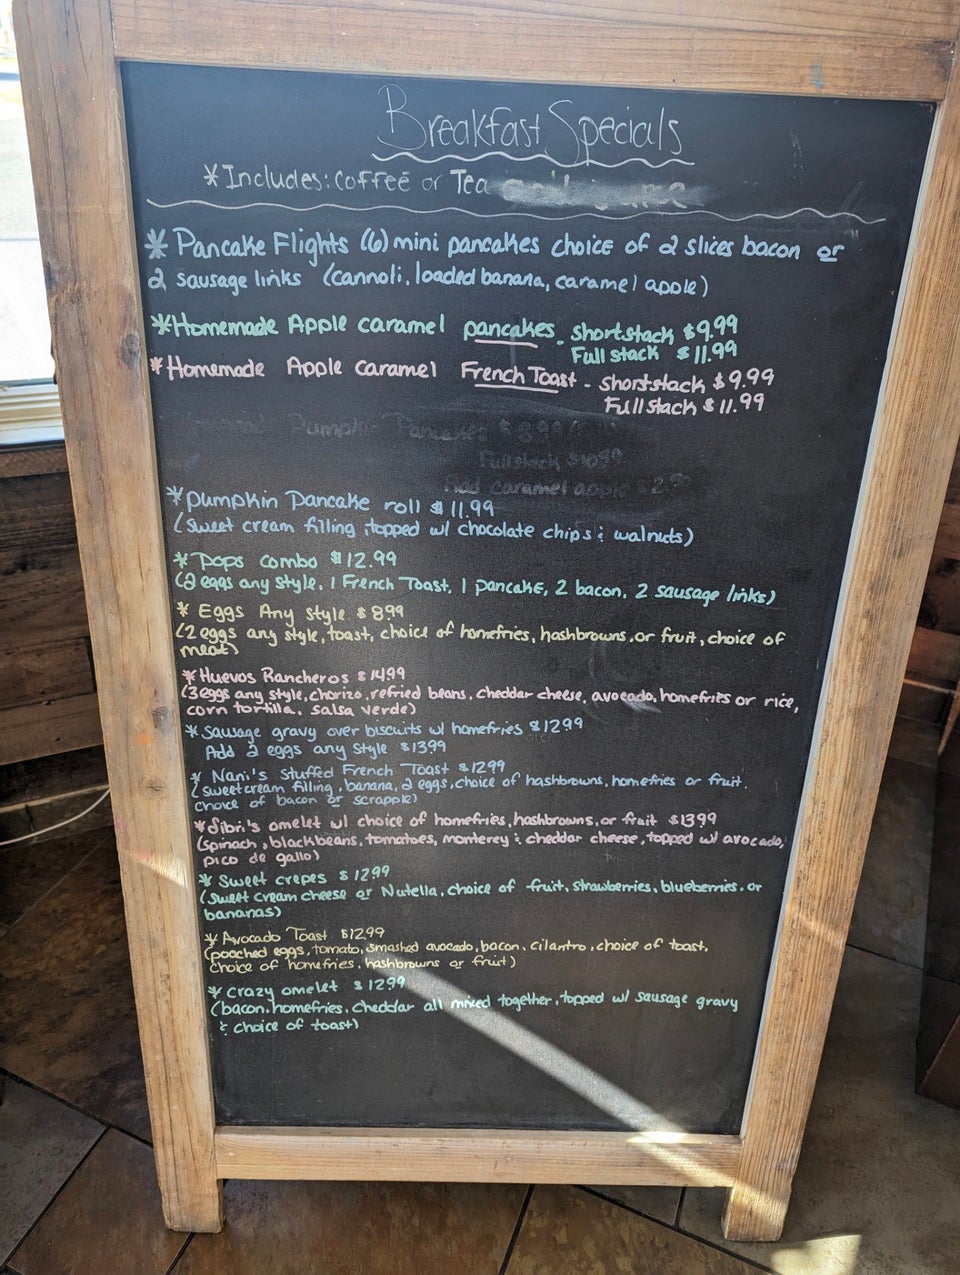 Breakfast Specials
*Includes: Coffee or Tea
*Pancake Flights (6) mini pancakes choice of 2 slices bacon or
2 sausage links (cannoli, loaded banana, caramel apple)
*Homemade Apple caramel pancakes - shortstack $9.99
Full stack $11.99
*Homemade Apple caramel French Toast - shortstack $9.99
Full stack $11.99
Pumpkin Pancakes $8.99
Fullstack $10.99
Add caramel apple $2.99
*Pumpkin Pancake roll $11.99
(sweet cream filling, topped w/ chocolate chips & walnuts)
*Pops combo $12.99
(2 eggs any style, 1 French Toast, 1 pancake, 2 bacon, 2 sausage links)
*Eggs Any style $8.99
(2 eggs any style, toast, choice of homefries, hashbrowns, or fruit, choice of
meat)
*Huevos Rancheros $14.99
(3 eggs any style, chorizo, refried beans, cheddar cheese, avocado, homefries or rice,
corn tortilla, salsa verde)
*Sausage gravy over biscuits w/ homefries $12.99
Add 2 eggs any style $13.99
*Nani's stuffed French Toast $12.99
(sweet cream filling, banana, 2 eggs, choice of hashbrowns, homefries or fruit.
choice of bacon or scrapple)
*Sibri's omelet w/ choice of homefries, hashbrowns, or fruit $13.99
(spinach, blackbeans, tomatoes, monterey & cheddar cheese, topped w/ avocado,
pico de gallo)
*Sweet crepes $12.99
(Sweet cream cheese or Nutella, choice of fruit, strawberries, blueberries, or
bananas)
*Avocado Toast $12.99
(poached eggs, tomato, smashed avocado, bacon, cilantro, choice of toast,
choice of homefries, hashbrowns or fruit)
*Crazy omelet $12.99
(bacon, homefries, cheddar all mixed together, topped w/ sausage gravy
& choice of toast)